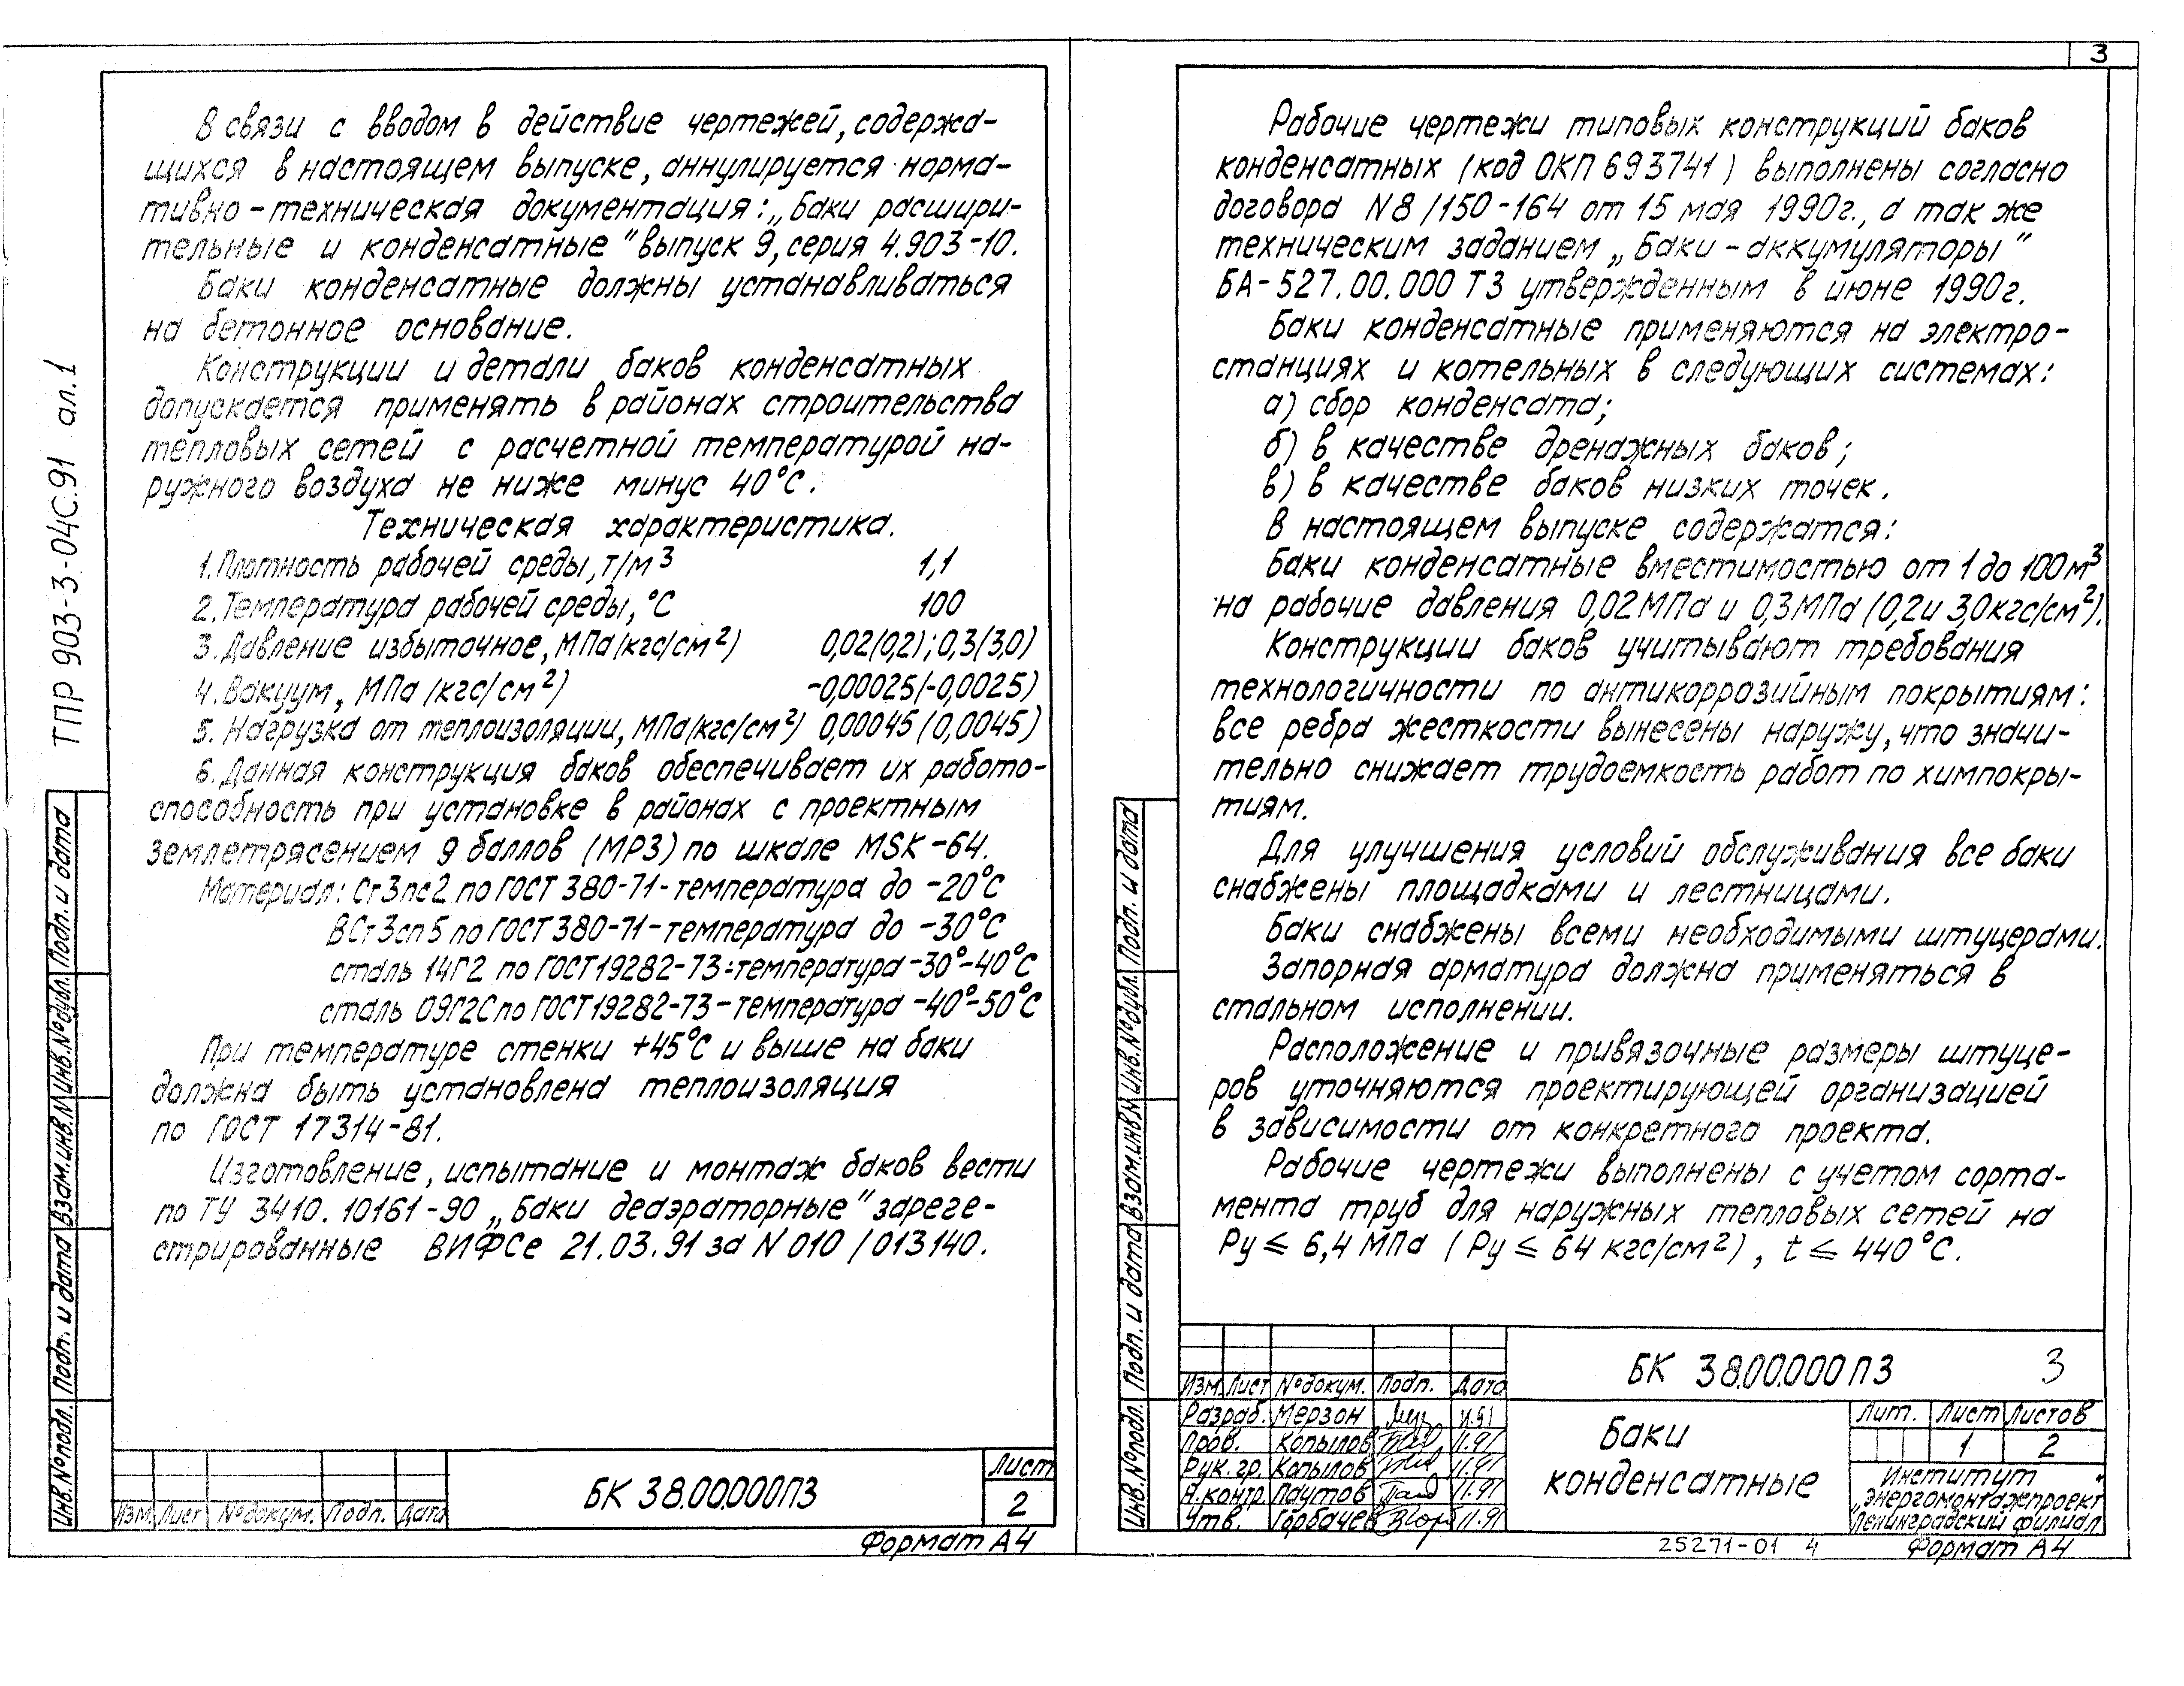 3
ТПР 903-3-04С.91 ал.1
В связи с вводом в действие чертежей, содержа-
щихся в настоящем выпуске, аннулируется норма-
тивно-техническая документация: „Баки расшири-
тельные и конденсатные" выпуск 9, серия 4.903-10.
Баки конденсатные должны устанавливаться
на бетонное основание.
Конструкции и детали баков конденсатных
допускается применять в районах строительства
тепловых сетей с расчетной температурой на-
ружного воздуха не ниже минус 40°С.
Техническая характеристика.
1. Плотность рабочей среды, т/м³ 1,1
2. Температура рабочей среды, °С 100
3. Давление избыточное, МПа (кгс/см²) 0,02(0,2); 0,3(3,0)
4. Вакуум, МПа (кгс/см²) -0,00025(-0,0025)
5. Нагрузка от теплоизоляции, МПа(кгс/см²) 0,00045 (0,0045)
6. Данная конструкция баков обеспечивает их работо-
способность при установке в районах с проектным
землетрясением 9 баллов (МРЗ) по шкале MSK-64.
Материал: Ст3пс2 по ГОСТ 380-71- температура до -20°С
ВСт3сп5 по ГОСТ 380-71- температура до -30°С
сталь 14Г2 по ГОСТ 19282-73-температура -30°-40°С
сталь 09Г2С по ГОСТ 19282-73- температура -40°-50°С
При температуре стенки +45°С и выше на баки
должна быть установлена теплоизоляция
по ГОСТ 17314-81.
Изготовление, испытание и монтаж баков вести
по ТУ 3410.10161-90 „Баки деаэраторные" зареге-
стрированные ВИФСе 21.03.91 за N 010/013140.
Инв.№подл. Подп. и дата Взам.инв.N Инв.№дубл. Подп. и дата
Изм. Лист №докум. Подп. Дата
БК 38.00.000ПЗ
Лист
2
Формат А4
Рабочие чертежи типовых конструкций баков
конденсатных (код ОКП 693741) выполнены согласно
договора N8/150-164 от 15 мая 1990г., а так же
техническим заданием „Баки-аккумуляторы"
БА-527.00.000 ТЗ утвержденным в июне 1990г.
Баки конденсатные применяются на электро-
станциях и котельных в следующих системах:
а) сбор конденсата;
б) в качестве дренажных баков;
в) в качестве баков низких точек.
В настоящем выпуске содержатся:
Баки конденсатные вместимостью от 1 до 100м³
на рабочие давления 0,02МПа и 0,3МПа (0,2 и 3,0кгс/см²).
Конструкции баков учитывают требования
технологичности по антикоррозийным покрытиям:
все ребра жесткости вынесены наружу, что значи-
тельно снижает трудоемкость работ по химпокры-
тиям.
Для улучшения условий обслуживания все баки
снабжены площадками и лестницами.
Баки снабжены всеми необходимыми штуцерами.
Запорная арматура должна применяться в
стальном исполнении.
Расположение и привязочные размеры штуце-
ров уточняются проектирующей организацией
в зависимости от конкретного проекта.
Рабочие чертежи выполнены с учетом сорта-
мента труб для наружных тепловых сетей на
Ру ≤ 6,4 МПа (Ру ≤ 64 кгс/см²), t ≤ 440°С.
Инв.№подл. Подп. и дата Взам.инв.N Инв.№дубл. Подп. и дата
БК 38.00.000ПЗ 3
Изм. Лист №докум. Подп. Дата
Разраб. Мерзон 11.91
Пров. Копылов 11.91
Рук. гр. Копылов 11.91
Н.контр. Паутов 11.91
Утв. Горбачев 11.91
Баки
конденсатные
Лит. Лист Листов
1 2
Институт
„Энергомонтажпроект"
Ленинградский филиал
25271-01 4
Формат А4